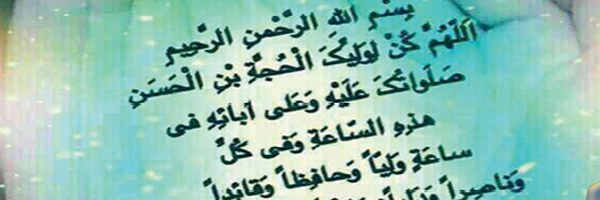 بِسْمِ اللهِ الرَّحْمنِ الرَّحيمِ
اَللّهُمَّ كُنْ لِوَلِيِّكَ الْحُجَّةِ بْنِ الْحَسَنِ
صَلَواتُكَ عَلَيْهِ وَعَلى آبائِهِ في
هذِهِ السّاعَةِ وَفي كُلِّ
ساعَةٍ وَلِيّاً وَحافِظاً وَقائِداً
وَناصِراً وَدَليلاً